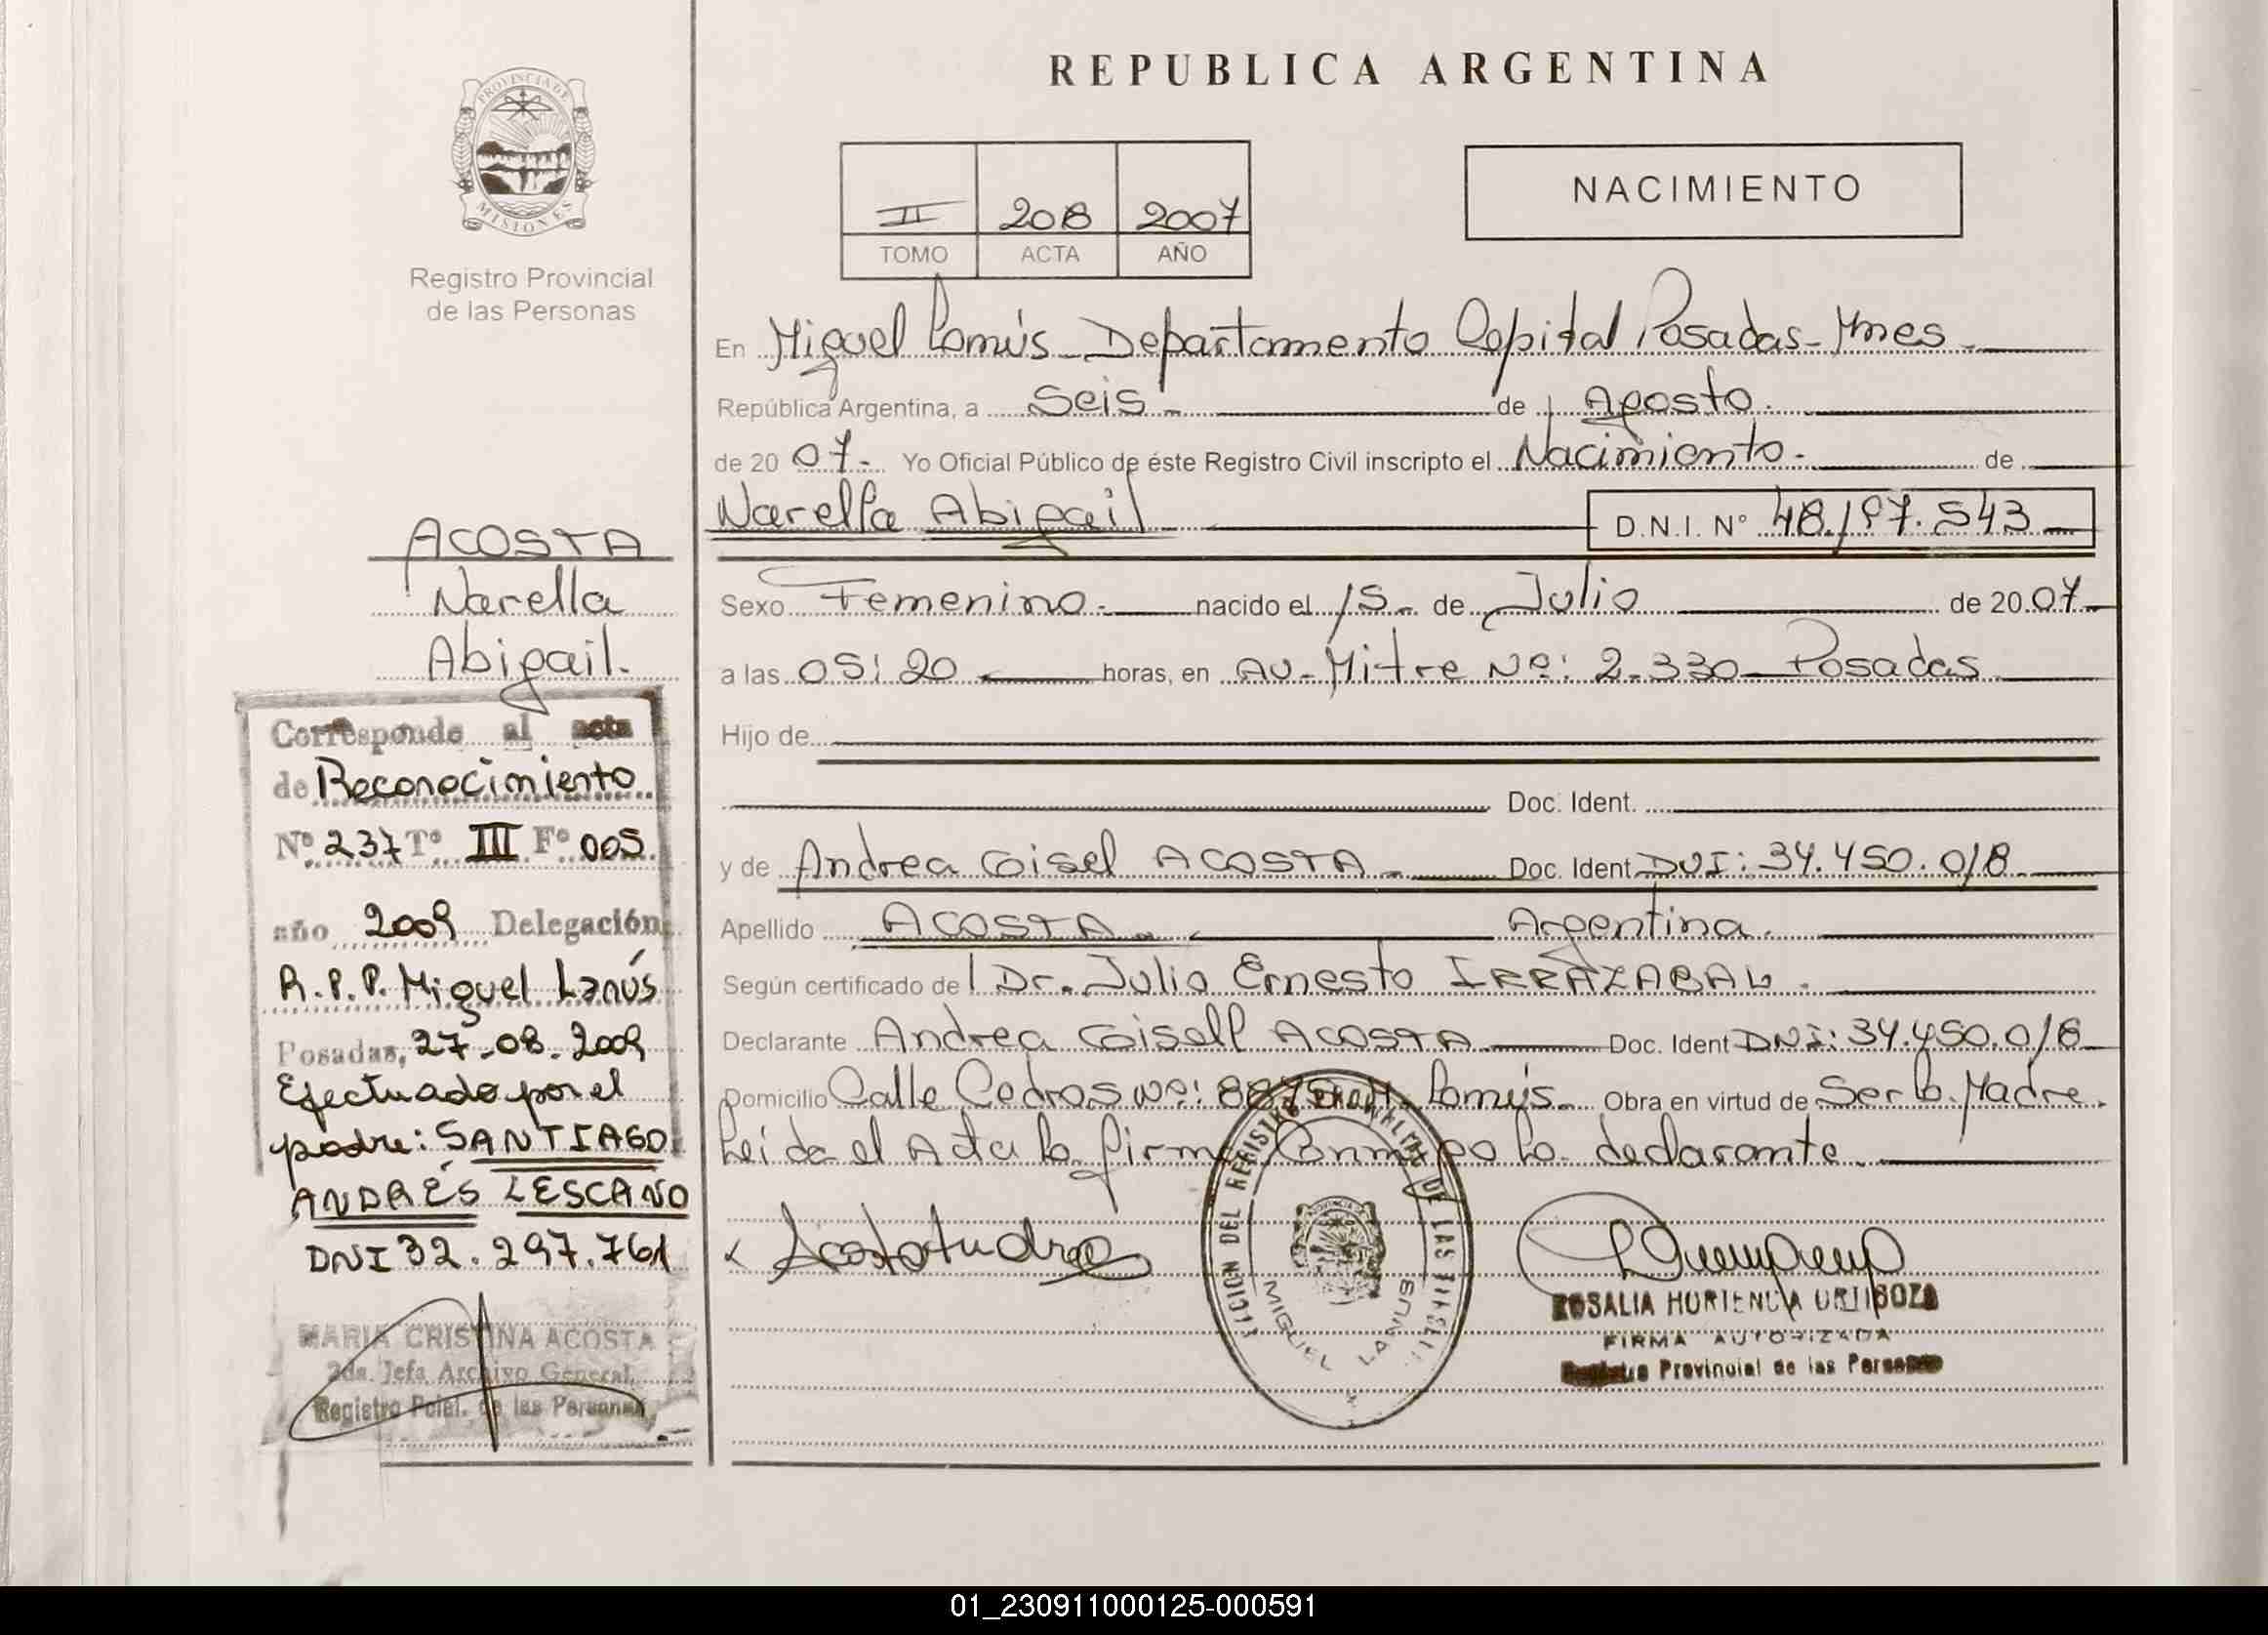 PROVINCIA DE
MISIONES
Registro Provincial
de las Personas
REPUBLICA ARGENTINA
II 208 2007
TOMO ACTA AÑO
NACIMIENTO
En Miguel Lanús - Departamento Capital Posadas - Mnes -
República Argentina, a Seis - de Agosto.
de 20 07 - Yo Oficial Público de éste Registro Civil inscripto el Nacimiento - de
Narella Abigail D.N.I. N° 48.197.543
Sexo Femenino - nacido el 15 - de Julio de 20 07
a las 05:20 horas, en Av - Mitre Nº: 2.330 Posadas
Hijo de
Doc. Ident.
y de Andrea Gisel ACOSTA - Doc. Ident DNI: 34.450.018
Apellido ACOSTA - Argentina.
Según certificado de Dr. Julio Ernesto IRRAZABAL.
Declarante Andrea Gisell ACOSTA Doc. Ident DNI: 34.450.018
Domicilio Calle Cedros Nº: Lanús - Obra en virtud de Ser la Madre.
Leída el Acta la firma Conmigo la declarante.
MIGUEL LANUS
ROSALIA HORTENCIA URTIGOZA
FIRMA AUTORIZADA
Registro Provincial de las Personas
ACOSTA
Narella
Abigail.
Corresponde al acta
de Reconocimiento
Nº 237 Tº III Fº 005
año 2009 Delegación
R.P.P. Miguel Lanús
Posadas, 27-08-2009
Efectuado por el
padre: SANTIAGO
ANDRÉS LESCANO
DNI 32.297.761
MARIA CRISTINA ACOSTA
2da. Jefa Archivo General
Registro Pcial. de las Personas
01_230911000125-000591